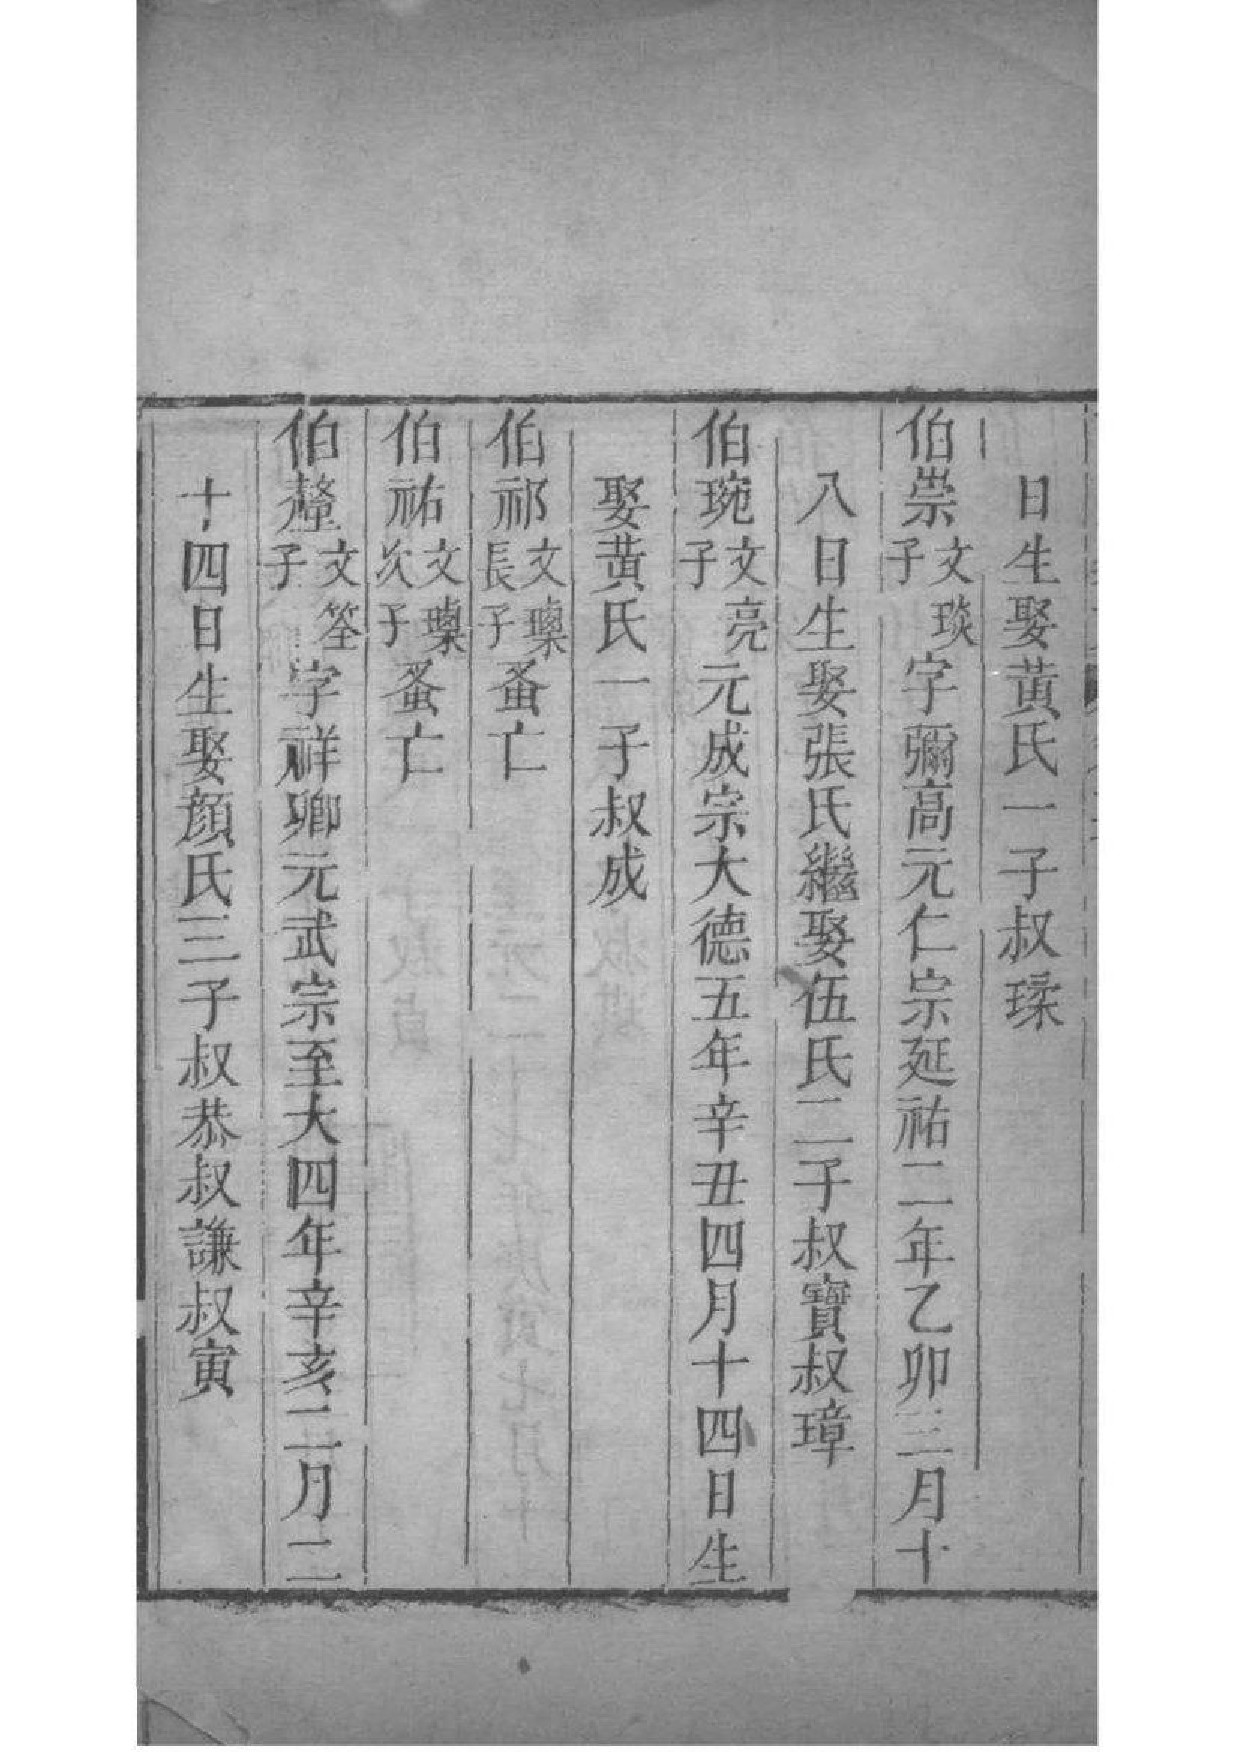 日生娶黃氏一子叔瑈
伯崇文琰子字彌高元仁宗延祐二年乙卯三月十
八日生娶張氏繼娶伍氏二子叔寶叔璋
伯琬文亮子元成宗大德五年辛丑四月十四日生
娶黃氏一子叔成
伯祁文璟長子蚤亡
伯祐文璟次子蚤亡
伯釐文筌子字祥卿元武宗至大四年辛亥二月二
十四日生娶顏氏三子叔恭叔謙叔寅